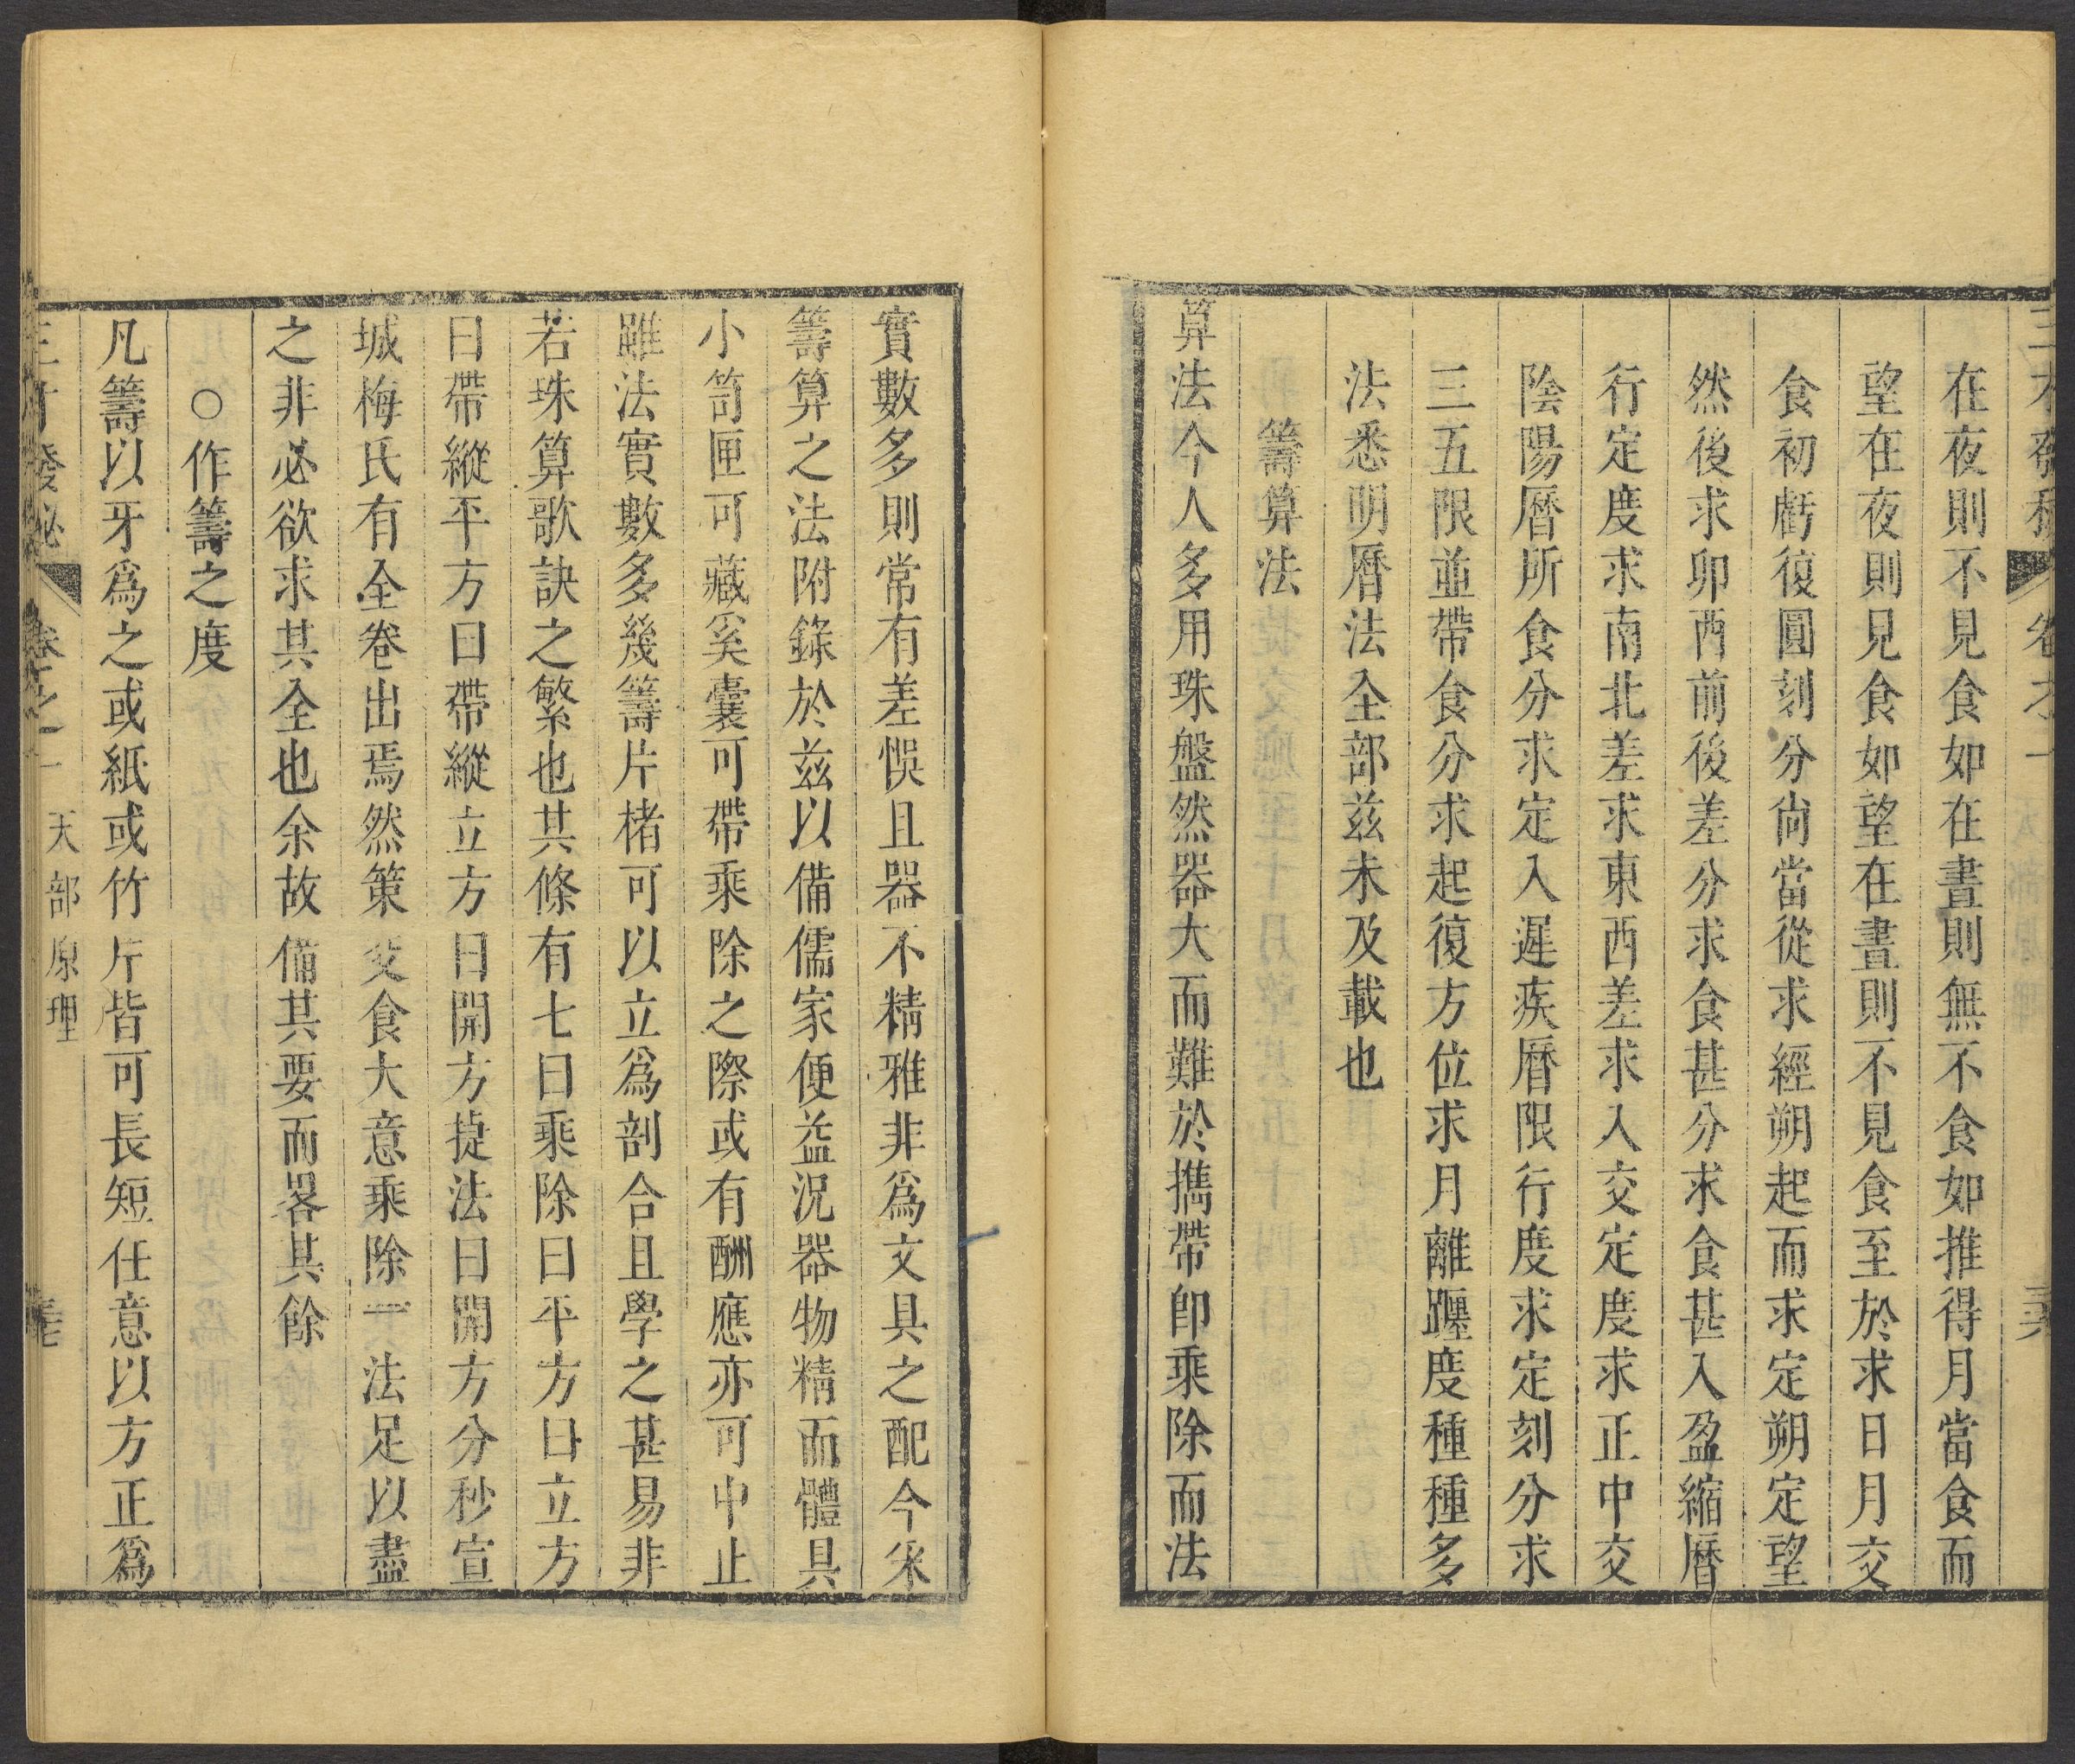 在夜則不見食如在晝則無不食如推得月當食而
望在夜則見食如望在晝則不見食至於求日月交
食初虧復圓刻分尚當從求經朔起而求定朔定望
然後求卯酉前後差分求食甚分求食甚入盈縮曆
行定度求南北差求東西差求入交定度求正中交
陰陽曆所食分求定入遲疾曆限行度求定刻分求
三五限並帶食分求起復方位求月離躔度種種多
法悉明曆法全部兹未及載也
籌算法
算法今人多用珠盤然器大而難於攜帶卽乘除而法
實數多則常有差悞且器不精雅非爲文具之配今采
籌算之法附錄於兹以備儒家便益況器物精而體具
小笥匣可藏奚囊可帶乘除之際或有酬應亦可中止
雖法實數多幾籌片楮可以立爲剖合且學之甚易非
若珠算歌訣之繁也其條有七曰乘除曰平方曰立方
曰帶縱平方曰帶縱立方曰開方捷法曰開方分秒宣
城梅氏有全卷出焉然策交食大意乘除一法足以盡
之非必欲求其全也余故備其要而畧其餘
○作籌之度
凡籌以牙爲之或紙或竹片皆可長短任意以方正爲
三才發秘 卷之一 天部原理